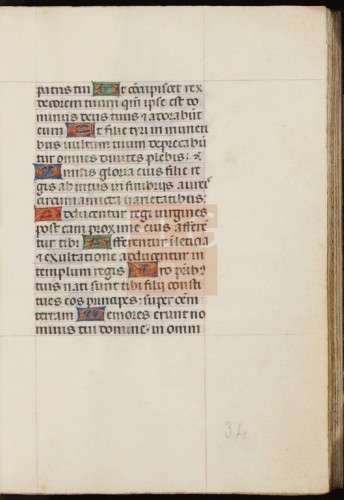 patris tui Et co͂cupiscet rex
decorem tuum qm̃ ipse est do
minus deus tuus ⁊ adorabũt
eum Et filie tyri in muneri
bus vultum tuum deprecabũ
tur omnes diuites plebis :
Omnis gloria eius filie re
gis ab intus in fimbriis aureis
circumamicta uarietatibus :
Adducentur regi uirgines
post eam proxime eius afferẽ
tur tibi Afferentur ĩ leticia
⁊ exultatione adducentur in
templum regis Pro pr̃ibꝰ
tuis nati sunt tibi filii consti
tues eos principes : super oẽm
terram Memores erunt no
minis tui domine · in omni
34